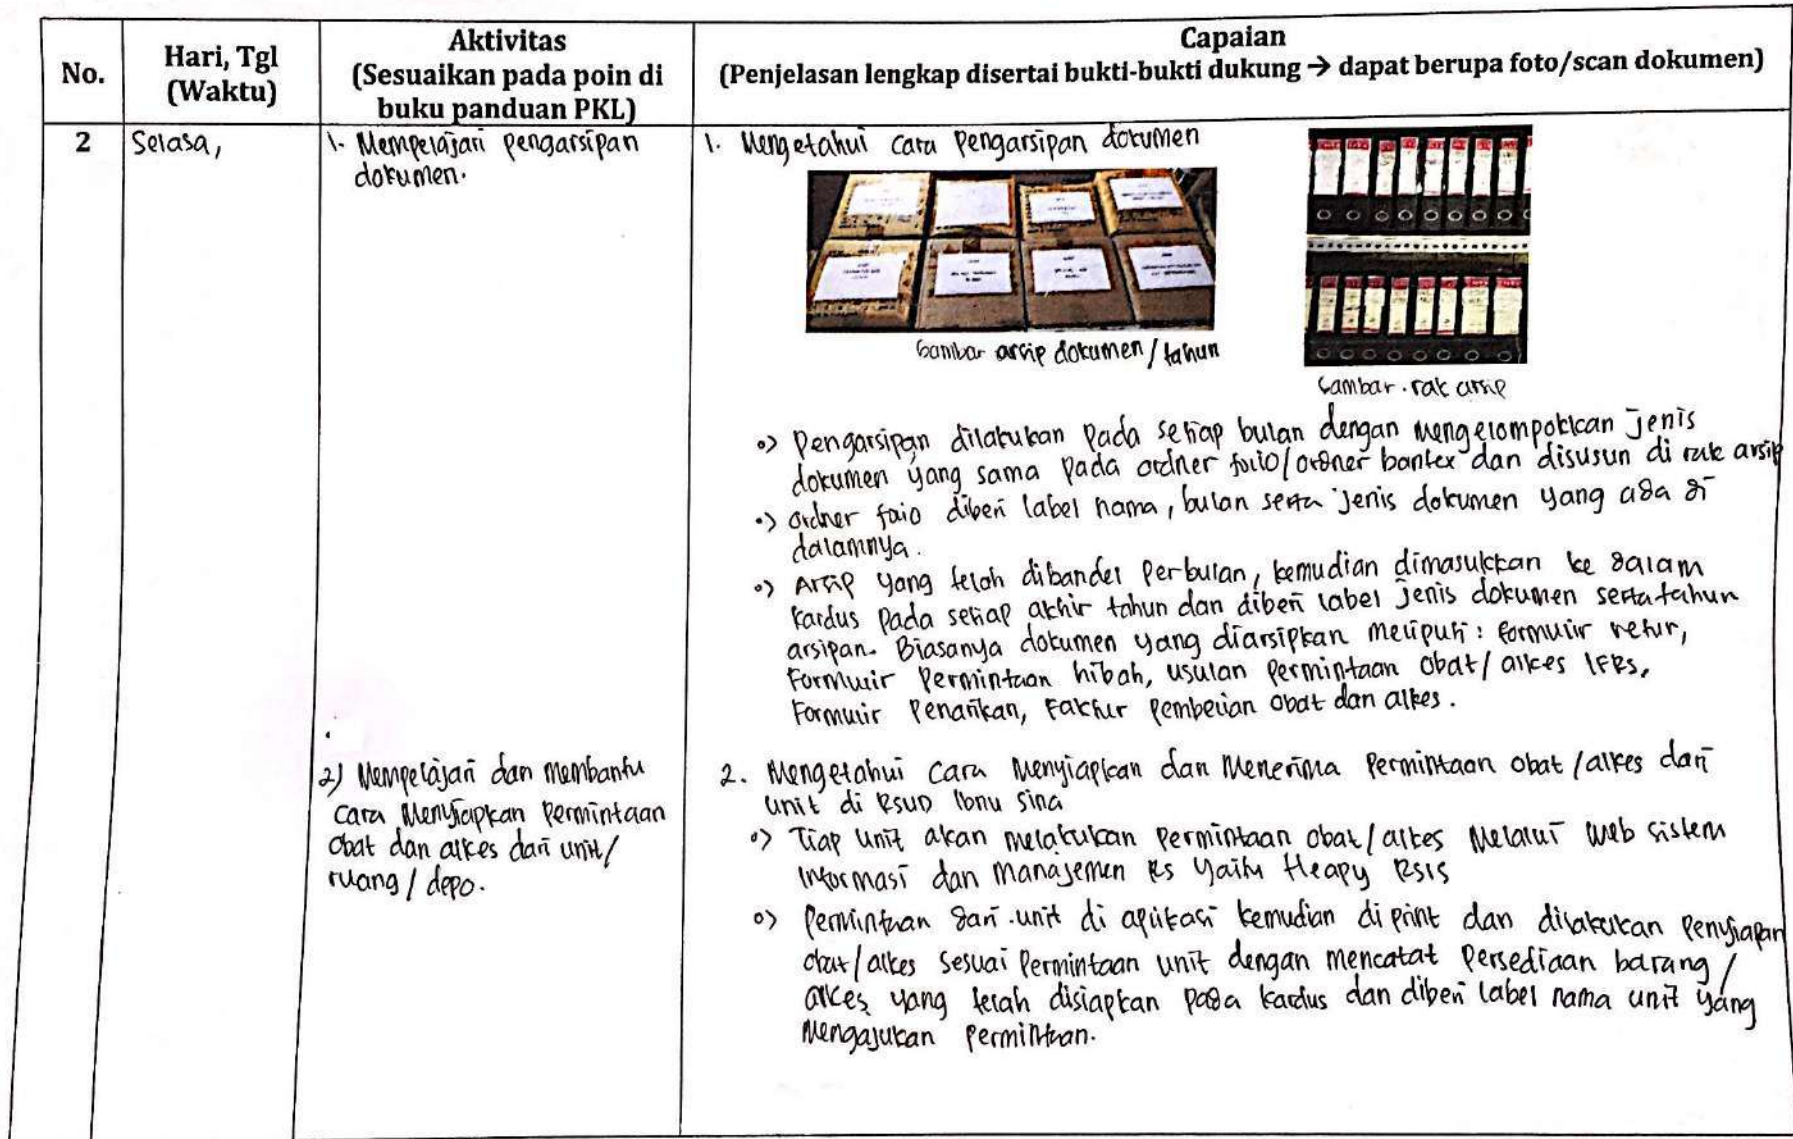 No.
Hari, Tgl
(Waktu)
Aktivitas
(Sesuaikan pada poin di
buku panduan PKL)
Capaian
(Penjelasan lengkap disertai bukti-bukti dukung → dapat berupa foto/scan dokumen)
2
Selasa,
1. Mempelajari pengarsipan
dokumen.
1. Mengetahui cara pengarsipan dokumen
Gambar arsip dokumen/tahun
Gambar. rak arsip
•> Pengarsipan dilakukan pada setiap bulan dengan mengelompokkan jenis
dokumen yang sama pada ordner folio/ordner bantex dan disusun di rak arsip
•> ordner faio diberi label nama, bulan serta jenis dokumen yang ada di
dalamnya.
•> Arsip yang telah dibandel perbulan, kemudian dimasukkan ke dalam
kardus pada setiap akhir tahun dan diberi label jenis dokumen serta tahun
arsipan. Biasanya dokumen yang diarsipkan meliputi: formulir retur,
Formulir Permintaan hibah, usulan permintaan obat/alkes IFRS,
Formulir Penarikan, Faktur pembelian obat dan alkes.
2) Mempelajari dan membantu
cara menyiapkan permintaan
obat dan alkes dari unit/
ruang/depo.
2. Mengetahui cara menyiapkan dan menerima permintaan obat/alkes dari
unit di RSUD Ibnu Sina
•> Tiap unit akan melakukan permintaan obat/alkes melalui web sistem
informasi dan manajemen RS yaitu Heapy RSIS
•> Permintaan dari unit di aplikasi kemudian di print dan dilakukan penyiapan
obat/alkes sesuai permintaan unit dengan mencatat persediaan barang/
alkes yang telah disiapkan pada kardus dan diberi label nama unit yang
mengajukan permintaan.